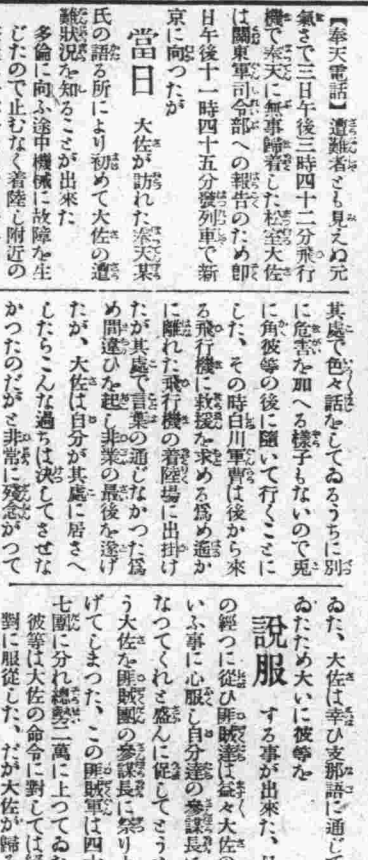 【奉天電話】遭難者とも見えぬ元
氣さで三日午後三時四十二分飛行
機で奉天に無事歸着した松室大佐
は關東軍司令部への報告のため即
日午後十一時四十五分發列車で新
京に向つたが
當日 大佐が訪れた奉天某
氏の語る所により初めて大佐の遭
難狀況を知ることが出來た
多倫に向ふ途中機械に故障を生
じたので止むなく着陸し附近の
其處で色々話をしてゐるうちに別
に危害を加へる樣子もないので兎
に角彼等の後に隨いて行くことに
した、その時白川軍曹は後から來
る飛行機に救援を求める爲め遙か
に離れた飛行機の着陸場に出掛け
たが其處で言葉の通じなかつた爲
め間違ひを起し非業の最後を遂げ
たが、大佐は自分が其處に居さへ
したらこんな過ちは決してさせな
かつたのだがと非常に殘念がつて
ゐた、大佐は幸ひ支那語に通じ
ゐたため大いに彼等を
說服 する事が出來た、
の經つに從ひ匪賊達は益々大佐の
いふ事に心服し自分達の參謀長に
なつてくれと盛んに促してとう
う大佐を匪賊團の參謀長に祭り
げてしまつた、この匪賊軍は四
七團に分れ總勢二萬に上つてゐ
彼等は大佐の命令に對しては
對に服從した、だが大佐が歸